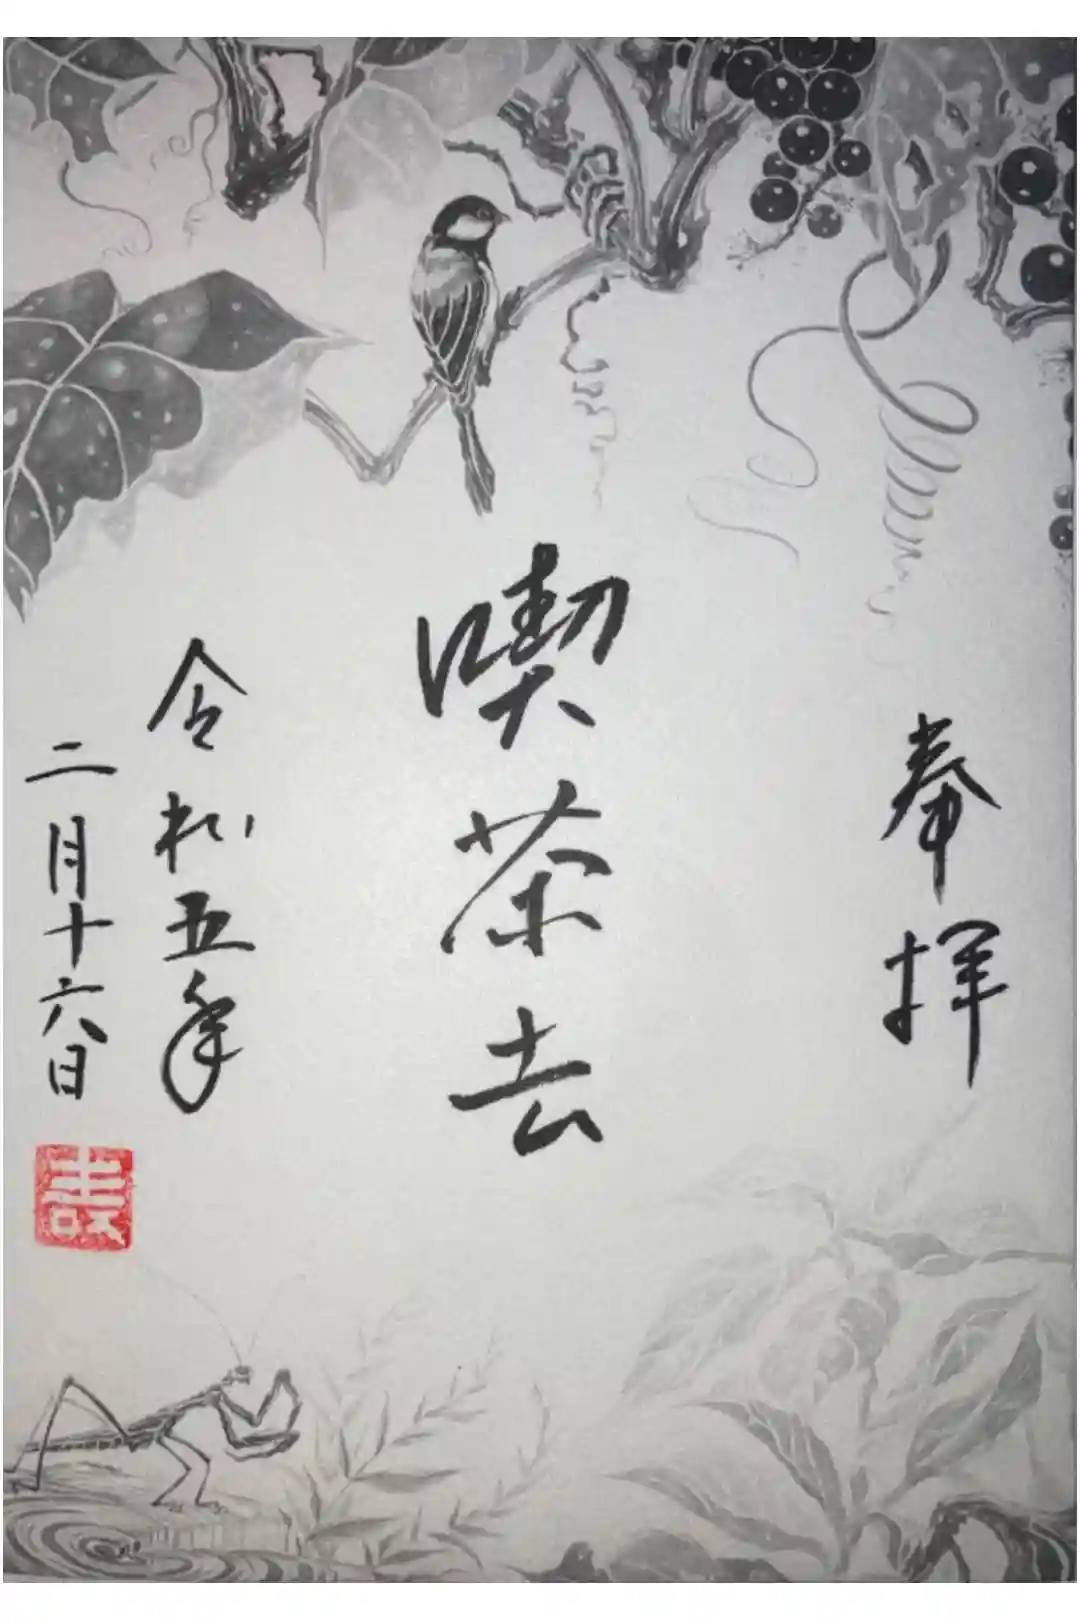 奉拝
喫茶去
令和五年
二月十六日